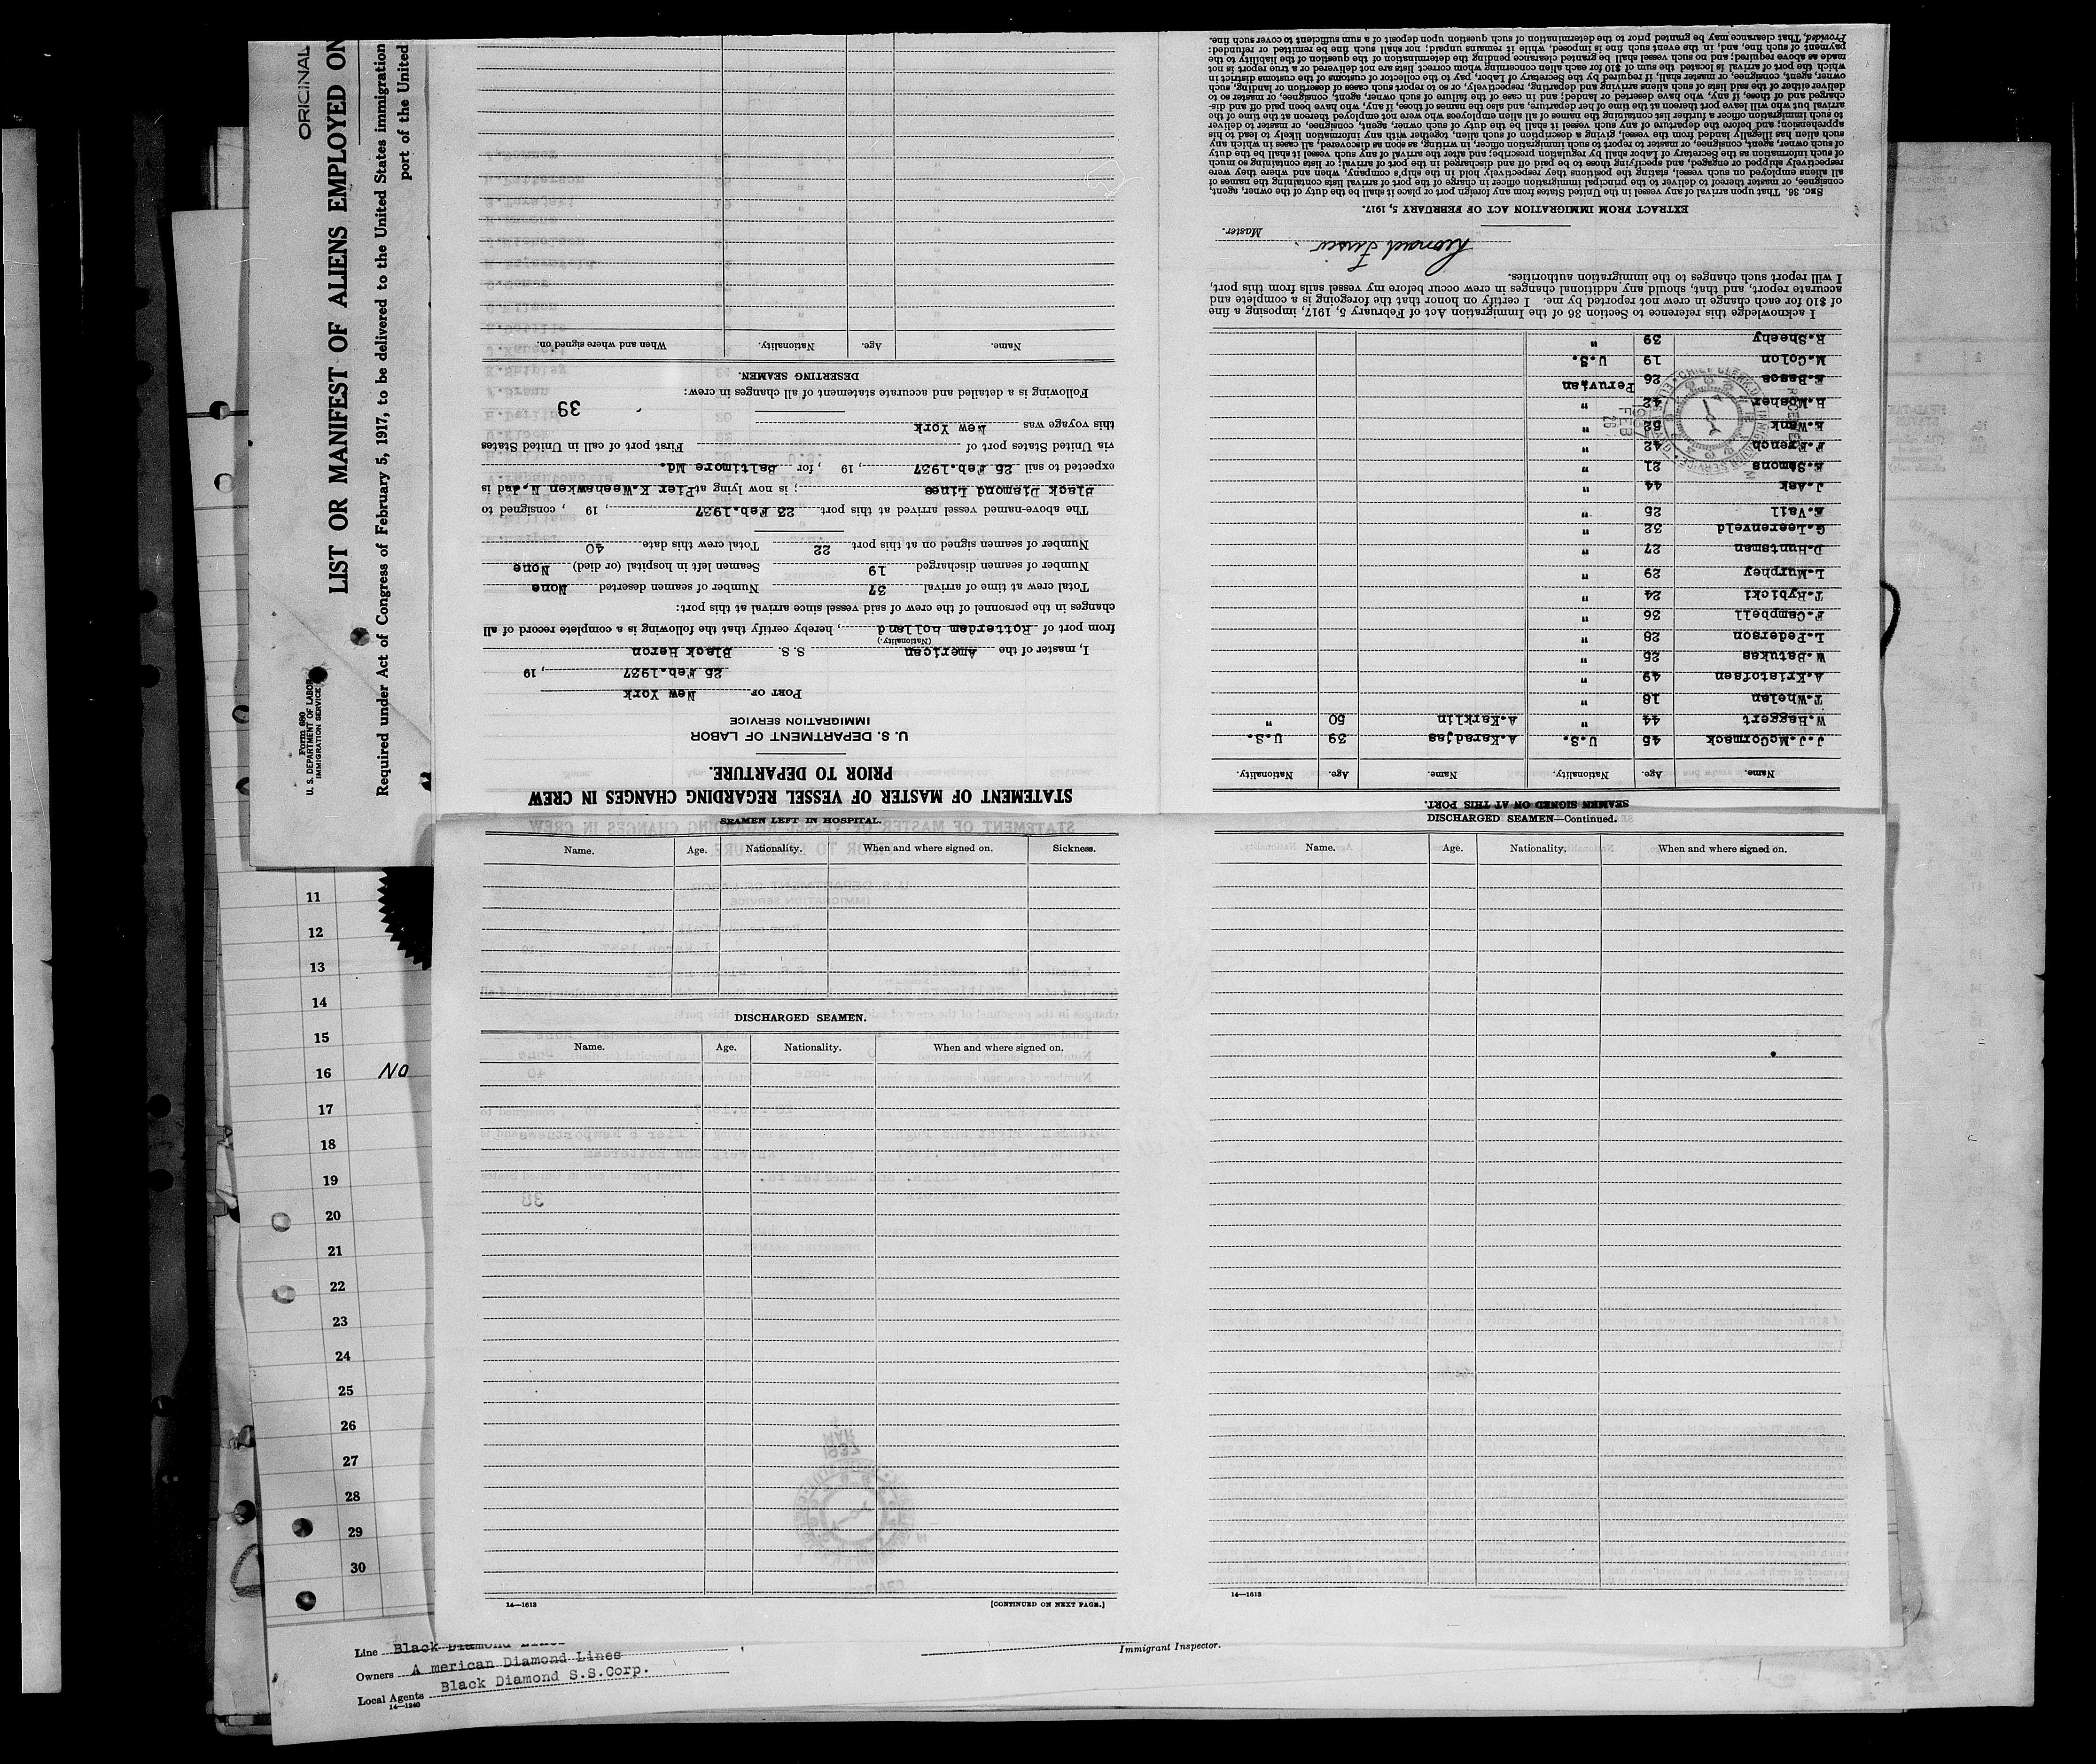 ORIGINAL
LIST OR MANIFEST OF ALIENS EMPLOYED ON
Required under Act of Congress of February 5, 1917, to be delivered to the United States immigration
port of the United
Form 680
U. S. DEPARTMENT OF LABOR
IMMIGRATION SERVICE
STATEMENT OF MASTER OF VESSEL REGARDING CHANGES IN CREW
PRIOR TO DEPARTURE.
U. S. DEPARTMENT OF LABOR
IMMIGRATION SERVICE
PORT OF New York
25 Feb.1937, 19
I, master of the American S. S. Black Heron
(Nationality.)
from port of Rotterdam holland, hereby certify that the following is a complete record of all
changes in the personnel of the crew of said vessel since arrival at this port:
Total crew at time of arrival 37 Number of seamen deserted None
Number of seamen discharged 19 Seamen left in hospital (or died) None
Number of seamen signed on at this port 22 Total crew this date 40
The above-named vessel arrived at this port 23 Feb.1937, 19 , consigned to
Black Diamond Lines ; is now lying at Pier K.Weehawken N.J and is
expected to sail 25 Feb.1937, 19 , for Baltimore Md.
via United States port of First port of call in United States
this voyage was New York
39
Following is a detailed and accurate statement of all changes in crew:
DESERTING SEAMEN.
Name. Age. Nationality. When and where signed on.
SEAMEN SIGNED ON AT THIS PORT.
Name. Age. Nationality. Name. Age. Nationality.
J.J.McCormack 45 U.S. A.Karadjas 39 U.S.
W.Haggert 44 " A.Karklin 50 "
T.Whelan 18 "
A.Kristofsen 49 "
W.Batukas 25 "
L.Pederson 28 "
F.Campbell 36 "
T.Rybicki 24 "
L.Murphey 29 "
D.Huntsman 27 "
G.Leerenveld 32 "
E.Vail 25 "
J.Ask 44 "
E.Simons 21 "
F.French 42 "
K.Wenk 52 "
H.Mosher 42 "
E.Basca 26 Peruvian
M.Colon 19 U.S.
R.Sheehy 39 "
RECEIVED
FEB 26
1937
I acknowledge this reference to Section 36 of the Immigration Act of February 5, 1917, imposing a fine
of $10 for each change in crew not reported by me. I certify on honor that the foregoing is a complete and
accurate report, and that, should any additional changes in crew occur before my vessel sails from this port,
I will report such changes to the immigration authorities.
Master.
EXTRACT FROM IMMIGRATION ACT OF FEBRUARY 5, 1917.
SEC. 36. That upon arrival of any vessel in the United States from any foreign port or place it shall be the duty of the owner, agent,
consignee, or master thereof to deliver to the principal immigration officer in charge of the port of arrival lists containing the names of
all aliens employed on such vessel, stating the positions they respectively hold in the ship's company, when and where they were
respectively shipped or engaged, and specifying those to be paid off and discharged in the port of arrival; or lists containing so much
of such information as the Secretary of Labor shall by regulation prescribe; and after the arrival of any such vessel it shall be the duty
of such owner, agent, consignee, or master to report to such immigration officer, in writing, as soon as discovered, all cases in which any
such alien has illegally landed from the vessel, giving a description of such alien, together with any information likely to lead to his
apprehension; and before the departure of any such vessel it shall be the duty of such owner, agent, consignee, or master to deliver
to such immigration officer a further list containing the names of all alien employees who were not employed thereon at the time of the
arrival but who will leave port thereon at the time of her departure, and also the names of those, if any, who have been paid off and dis-
charged and of those, if any, who have deserted or landed; and in case of the failure of such owner, agent, consignee, or master so to
deliver either of the said lists of such aliens arriving and departing, respectively, or so to report such cases of desertion or landing, such
owner, agent, consignee, or master shall, if required by the Secretary of Labor, pay to the collector of customs of the customs district in
which the port of arrival is located the sum of $10 for each alien concerning whom correct lists are not delivered or a true report is not
made as above required; and no such vessel shall be granted clearance pending the determination of the question of the liability to the
payment of such fine, and, in the event such fine is imposed, while it remains unpaid; nor shall such fine be remitted or refunded:
Provided, That clearance may be granted prior to the determination of such question upon deposit of a sum sufficient to cover such fine.
SEAMEN LEFT IN HOSPITAL.
Name. Age. Nationality. When and where signed on. Sickness.
DISCHARGED SEAMEN.
Name. Age. Nationality. When and where signed on.
14—1613
[CONTINUED ON NEXT PAGE.]
DISCHARGED SEAMEN—Continued.
Name. Age. Nationality. When and where signed on.
14—1613
11
12
13
14
15
16 NO
17
18
19
20
21
22
23
24
25
26
27
28
29
30
Line Black Diamond Lines
Owners A merican Diamond Lines
Local Agents Black Diamond S.S.Corp.
14—1240
Immigrant Inspector.